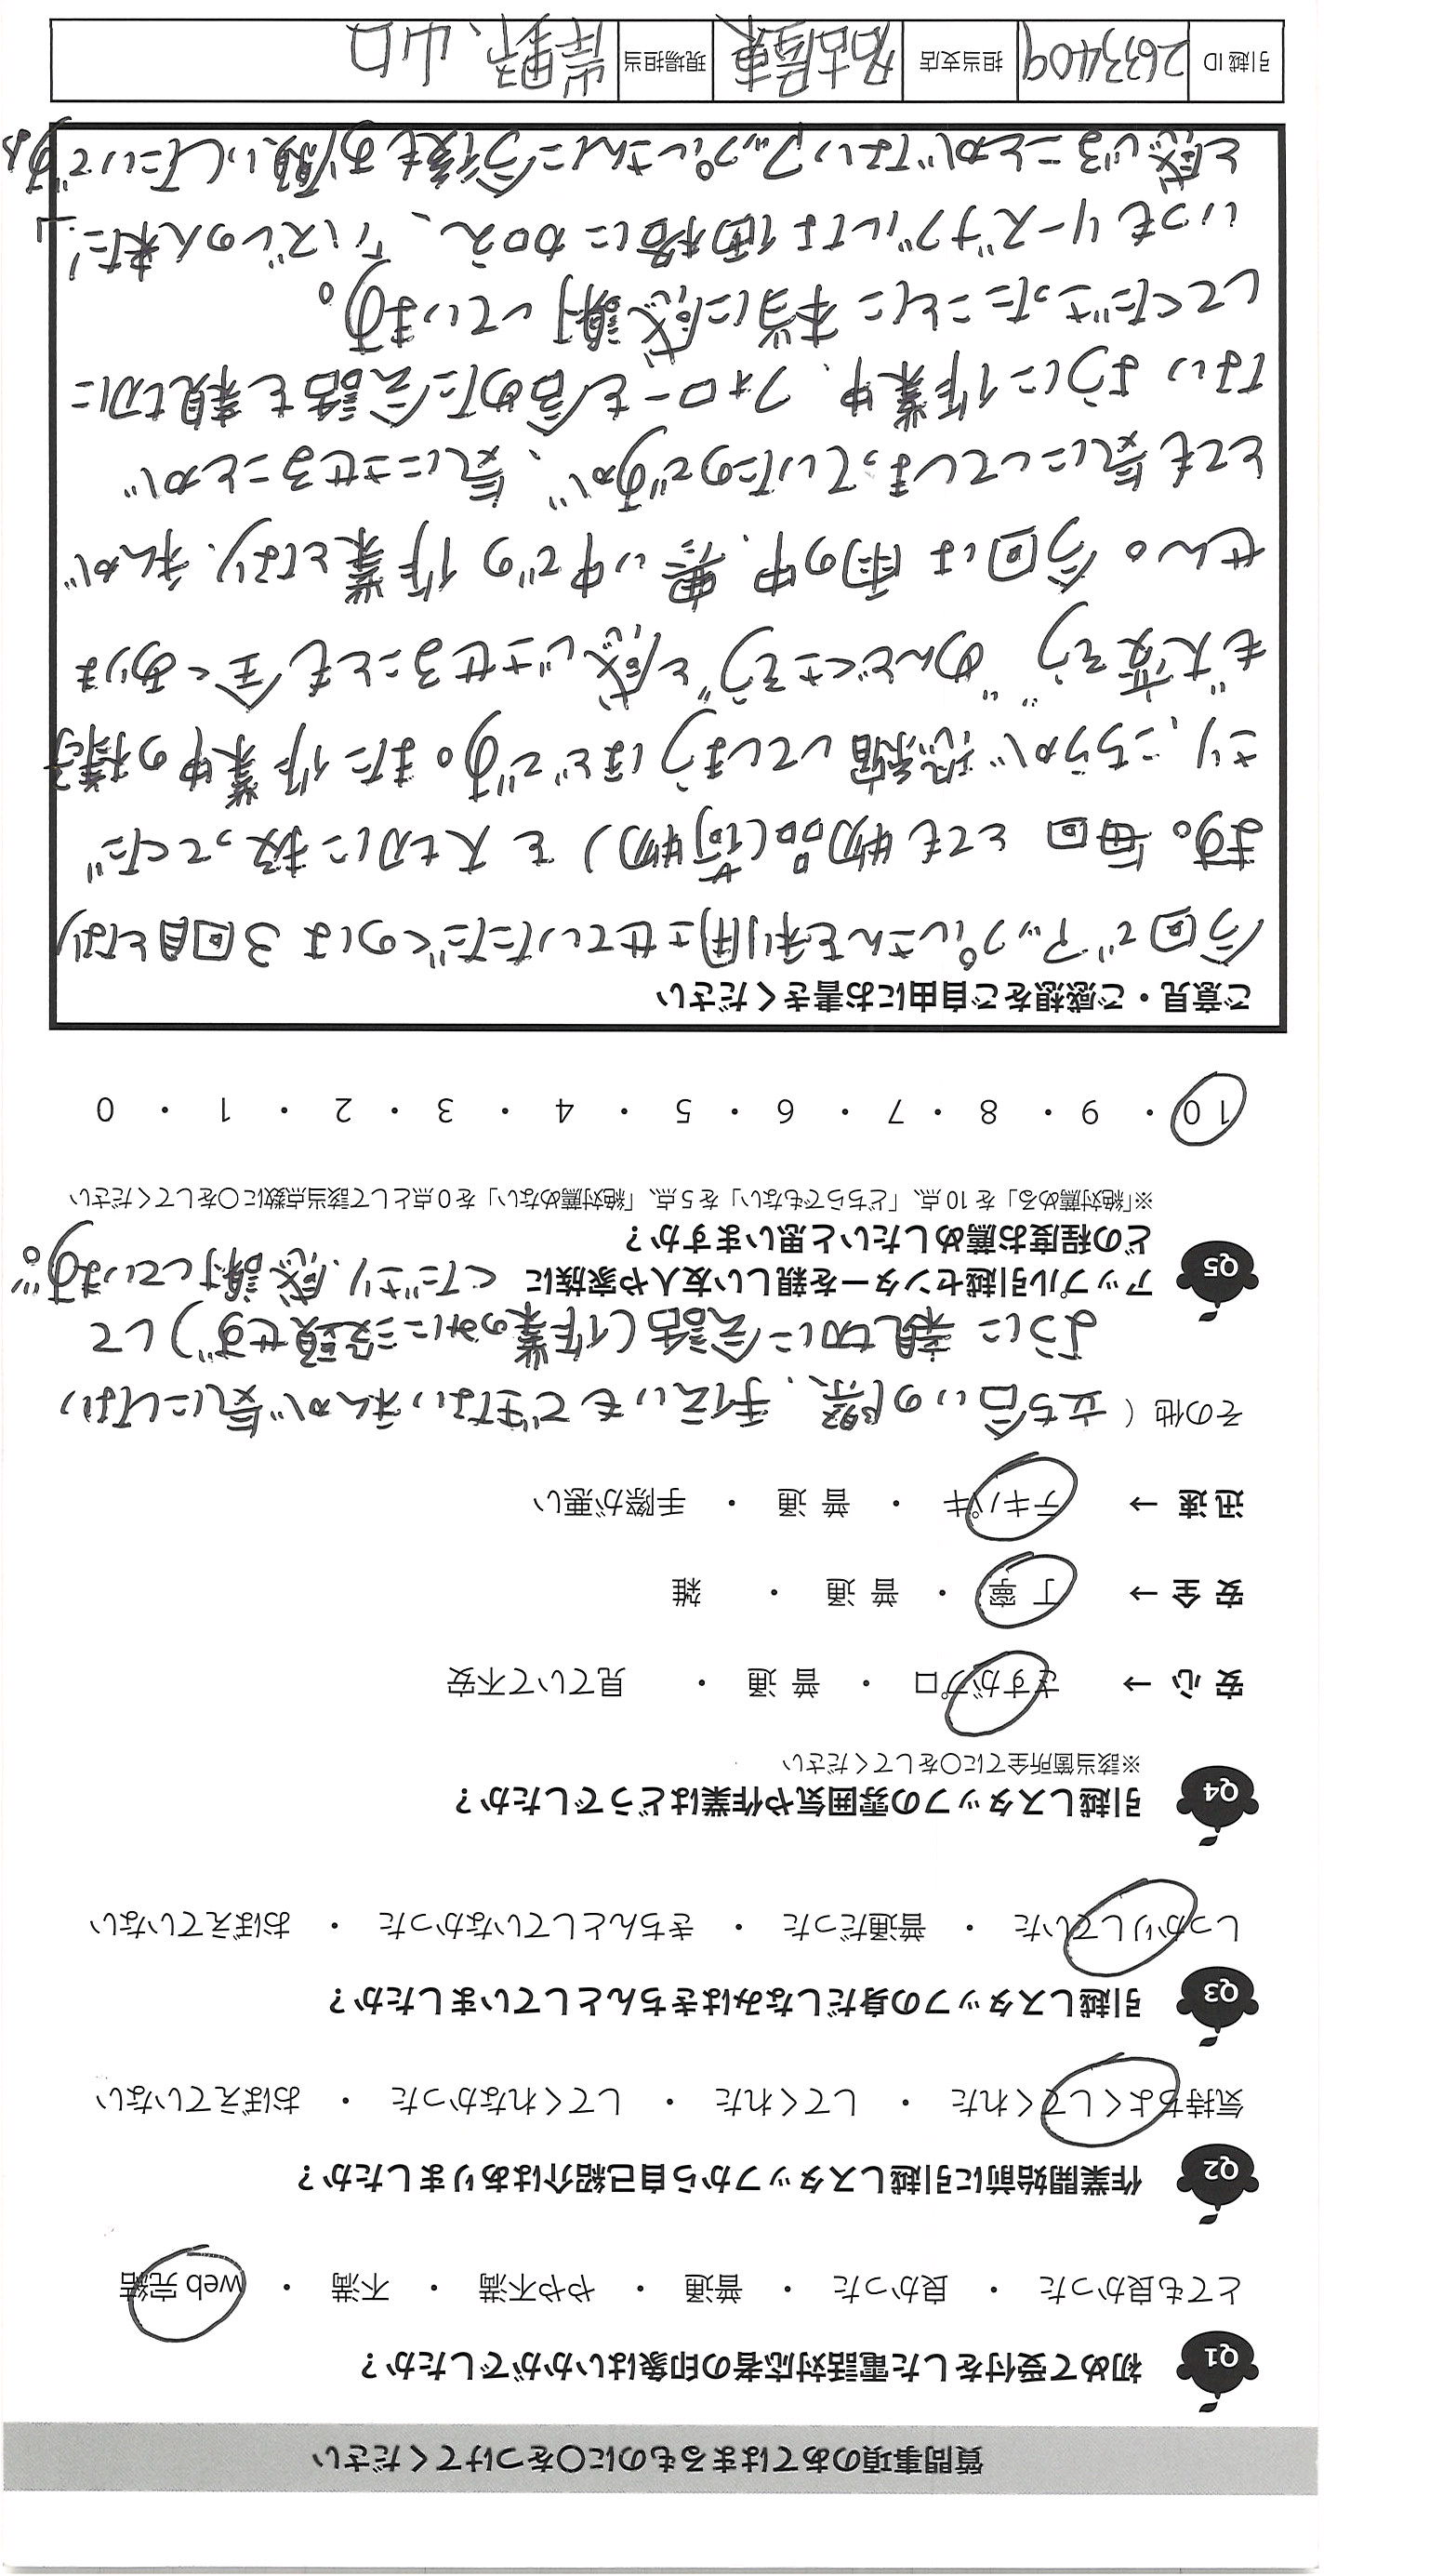 質問事項のあてはまるものに○をつけてください
Q1 初めて受付をした電話対応者の印象はいかがでしたか？
とても良かった ・ 良かった ・ 普通 ・ やや不満 ・ 不満 ・ web 完結
Q2 作業開始前に引越しスタッフから自己紹介はありましたか？
気持ちよくしてくれた ・ してくれた ・ してくれなかった ・ おぼえていない
Q3 引越しスタッフの身だしなみはきちんとしていましたか？
しっかりしていた ・ 普通だった ・ きちんとしていなかった ・ おぼえていない
Q4 引越しスタッフの雰囲気や作業はどうでしたか？
※該当箇所全てに○をしてください
安 心 → さすがプロ ・ 普 通 ・ 見ていて不安
安 全 → 丁 寧 ・ 普 通 ・ 雑
迅 速 → テキパキ ・ 普 通 ・ 手際が悪い
その他 ( 立ち合いの際、手伝いもできない私が気にしない
ように親切に会話(作業のみに没頭せず)して
くださり、感謝しています。
Q5 アップル引越センターを親しい友人や家族に
どの程度お薦めしたいと思いますか？
※「絶対薦める」を 10 点、「どちらでもない」を 5 点、「絶対薦めない」を 0 点として該当点数に○をしてください
10 ・ 9 ・ 8 ・ 7 ・ 6 ・ 5 ・ 4 ・ 3 ・ 2 ・ 1 ・ 0
ご意見・ご感想をご自由にお書きください
今回でアップルさんを利用させていただくのは3回目となり
ます。毎回とても物品(荷物)を大切に扱ってくだ
さり、こちらが恐縮してしまうほどです。また作業中の様子
も“大変そう”“めんどくさそう”と感じさせることも全くありま
せん。今回は雨の中、寒い中での作業となり、私が
とても気にしてしまっていたのですが、気にさせることが
ないように作業中、フォローも含めた会話も親切に
してくださったことに本当に感謝しています。
いつもリーズナブルな価格に加え、「ハズレの人来た!」
と感じることがないアップルさんに今後もお願いしたいです♪
引越 ID 2633409 担当支店 名古屋東 現場担当 岸野、山口